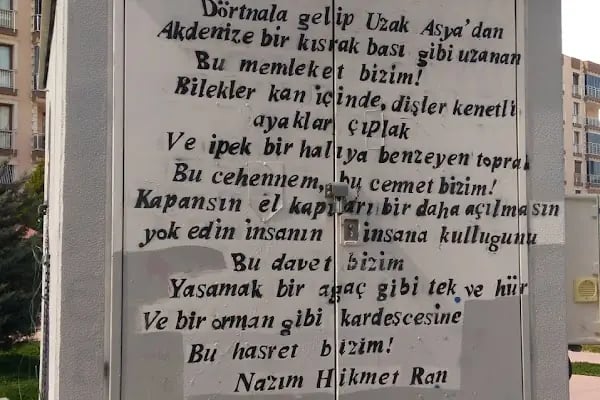 Dörtnala gelip Uzak Asya'dan
Akdenize bir kısrak bası gibi uzanan
Bu memleket bizim!
Bilekler kan içinde, dişler kenetli
ayaklar, çıplak
Ve ipek bir halıya benzeyen toprak
Bu cehennem, bu cennet bizim!
Kapansın el kapıları bir daha açılmasın
yok edin insanın insana kullugunu
Bu davet bizim
Yasamak bir agaç gibi tek ve hür
Ve bir orman gibi kardescesine
Bu hasret bizim!
Nazım Hikmet Ran